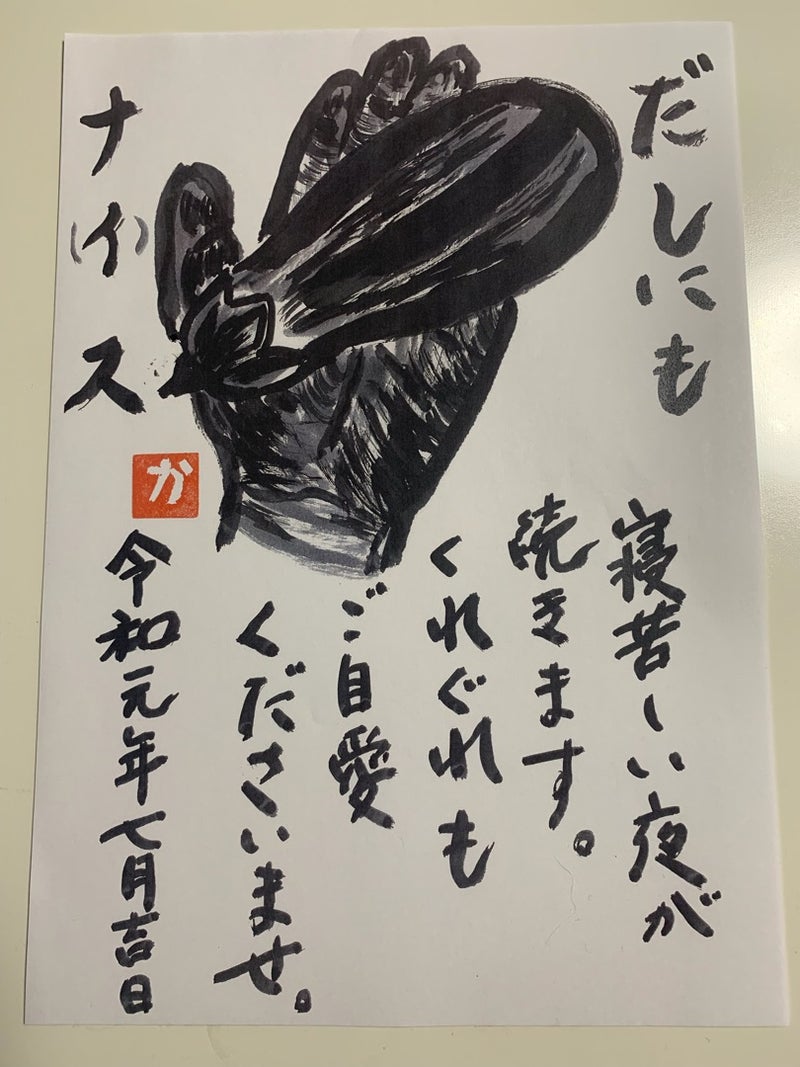 だしにも
ナ(イ)ス
か
寝苦しい夜が
続きます。
くれぐれも
ご自愛
くださいませ。
令和元年七月吉日